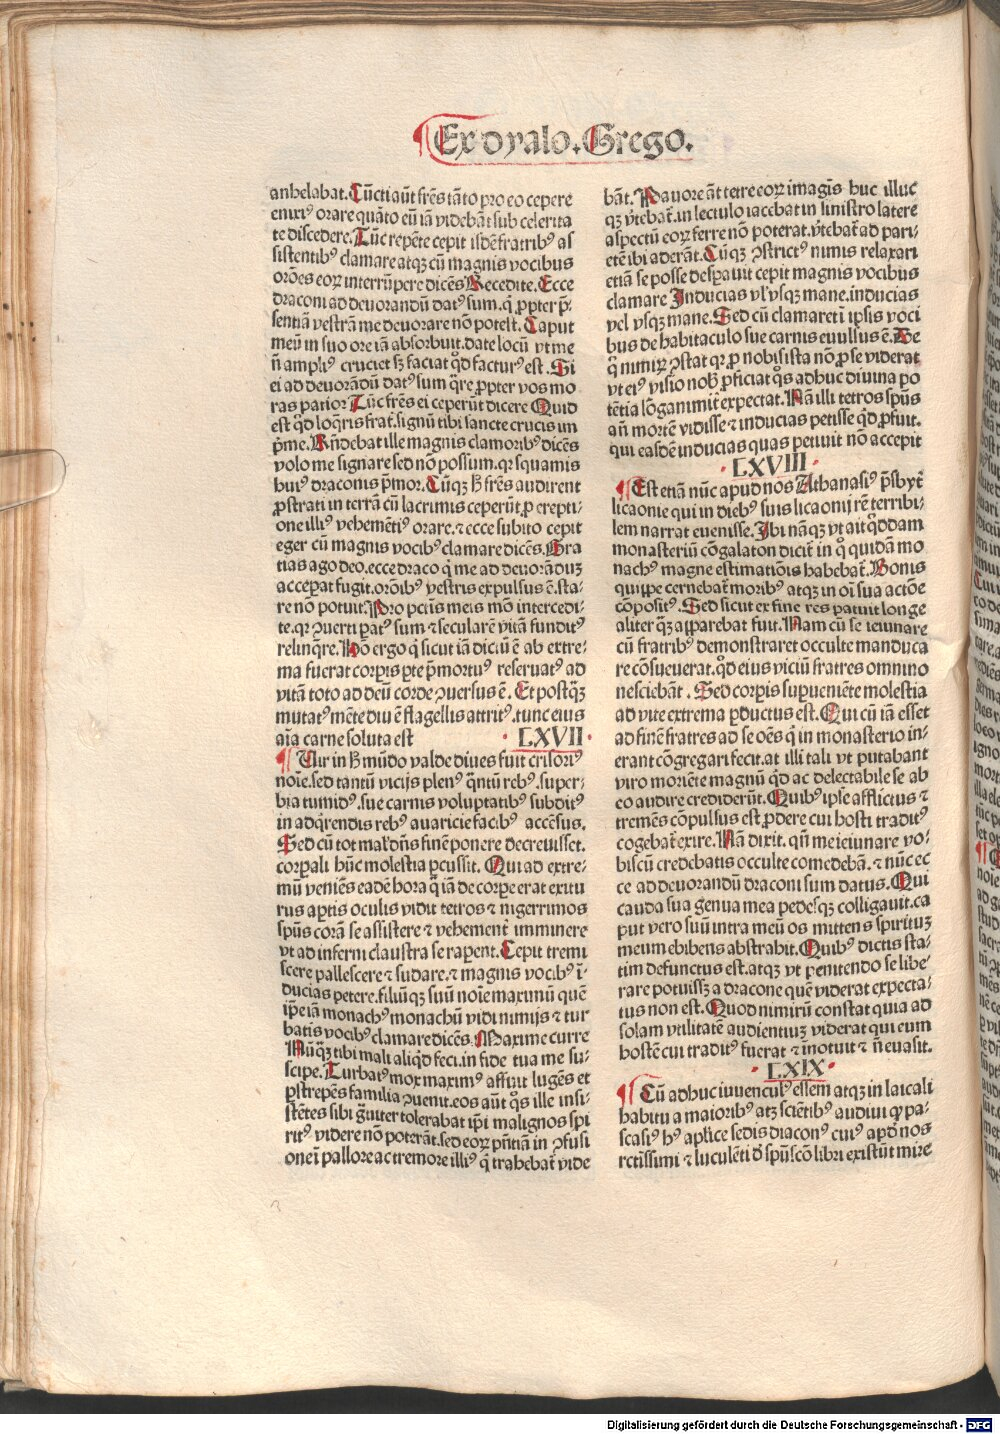 Ex dyalo. Grego.
anhelabat. Cūcti aūt frēs tāto pro eo cepere
enixiꝰ orare quāto eū iā videbāt sub celerita
te discedere. Tūc repēte cepit isdē fratribꝰ as
sistentibꝰ clamare atqꝫ cū magnis vocibus
orōes eoꝝ interrūpere dicēs Recedite. Ecce
draconi ad deuorandū datꝰ sum. q̄ ꝓpter p̄-
sentiā vestrā me deuorare nō potest. Caput
meū in suo ore iā absorbuit. date locū vt me
n̄ ampliꝰ cruciet sꝫ faciat qd̄ facturꝰ est. Si
ei ad deuorādū datꝰ sum q̄re ꝓpter vos mo
ras patior Tūc frēs ei ceperūt dicere Quid
est qd̄ loq̄ris frat̄. signū tibi sancte crucis im
p̄me. Rn̄debat ille magnis clamoribꝰ dicēs
volo me signare sed nō possum. qr squamis
huiꝰ draconis p̄mor. Cūqꝫ h̄ frēs audirent
ꝓstrati in terrā cū lacrimis ceperūt ꝓ erepti-
one illiꝰ vehemētiꝰ orare. ⁊ ecce subito cepit
eger cū magnis vocibꝰ clamare dicēs. Gra
tias ago deo. ecce draco q̄ me ad deuorādūꝫ
acceꝑat fugit. orōibꝰ vestris expulsus ē. sta-
re nō potuit. Pro pctīs meis mō intercedi-
te. qr ꝯuerti ꝑatꝰ sum ⁊ secularē vitā funditꝰ
relinq̄re. Hō ergo q̄ sicut iā dictū ē ab extre-
ma fuerat corꝑis ꝑte p̄mortuꝰ reseruatꝰ ad
vitā toto ad deū corde ꝯuersus ē. Et postq̄ꝫ
mutatꝰ mēte diu ē flagellis attritꝰ. tunc eius
aīa carne soluta est · LXVII ·
¶ Uir in h̄ mūdo valde diues fuit crisoriꝰ
noīe. sed tantū vicijs plenꝰ q̄ntū rebꝰ. super-
bia tumidꝰ. sue carnis voluptatibꝰ subditꝰ
in adq̄rendis rebꝰ auaricie facibꝰ accēsus.
Sed cū tot mal' dn̄s finē ponere decreuisset.
corꝑali hūc molestia ꝑcussit. Qui ad extre-
mū veniēs eadē hora q̄ iā de corꝑe erat exitu
rus aꝑtis oculis vidit tetros ⁊ nigerrimos
spūs corā se assistere ⁊ vehement̄ imminere
vt ad inferni claustra se raꝑent. Cepit tremi
scere pallescere ⁊ sudare. ⁊ magnis vocibꝰ ī-
ducias petere. filiūqꝫ suū noīe maximū quē
ip̄e iā monachꝰ monachū vidi nimijs ⁊ tur
batis vocibꝰ clamare dicēs. Maxime curre
Nūq̄ꝫ tibi mali aliqd̄ feci. in fide tua me su-
scipe. Turbatꝰ mox maximꝰ affuit lugēs et
ꝑstrepēs familia ꝯuenit. eos aūt q̄s ille insi-
stētes sibi grauiter tolerabat ip̄i malignos spi
ritꝰ videre nō poterāt. sed eoꝝ p̄ntiā in ꝯfusi
one ī pallore ac tremore illiꝰ q̄ trahebat̄ vide
bāt. Pauore āt tetre eoꝝ imagīs huc illuc
qꝫ v̄tebat̄. in lectulo iacebat in sinistro latere
aspectū eoꝝ ferre nō poterat. v̄tebat̄ ad pari-
etē ibi aderāt. Cūqꝫ ꝯstrictꝰ nimis relaxari
etiā se posse desꝑauit cepit magnis vocibus
clamare Inducias vl' vsqꝫ mane. inducias
vel vsqꝫ mane. Sed cū clamaret ī ip̄sis voci
bus de habitaculo sue carnis euulsus ē. De
q̄ nimiꝝ ꝯstat qr ꝓ nobis ista nō ꝓ se viderat
vt eiꝰ visio nob̄ ꝓficiat q̄s adhuc diuina po
tētia lōganimit̄ expectat. Nā illi tetros spūs
an̄ mortē vidisse ⁊ inducias petisse qd̄ ꝓfuit.
qui easdē inducias quas petiuit nō accepit
· LXVIII ·
¶ Est etiā nūc apud nos Athanasiꝰ p̄sbyt̄
licaonie qui in diebꝰ suis licaonij rē terribi-
lem narrat euenisse. Ibi nāqꝫ vt ait qd̄dam
monasteriū cōgalaton dicit̄ in q̄ quidā mo
nachꝰ magne estimatiōis habebat̄. Bonis
quippe cernebat̄ moribꝰ atqꝫ in oī sua actōe
cōpositꝰ. Sed sicut ex fine res patuit longe
aliter q̄ꝫ apparebat fuit. Nam cū se ieiunare
cū fratribꝰ demonstraret occulte manduca
re cōsueuerat. qd̄ eius viciū fratres omnino
nesciebāt. Sed corꝑis suꝑueniēte molestia
ad vite extrema ꝑductus est. Qui cū iā esset
ad finē fratres ad se oēs q̄ in monasterio in-
erant cōgregari fecit. at illi tali vt putabant
viro moriēte magnū qd̄ ac delectabile se ab
eo audire crediderūt. Quibꝰ ip̄e afflictus ⁊
tremēs cōpulsus est ꝓdere cui hosti traditꝰ
cogebat̄ exire. Nā dixit. qn̄ me ieiunare vo-
biscū credebatis occulte comedebā. ⁊ nūc ec
ce ad deuorandū draconi sum datus. Qui
cauda sua genua mea pedesqꝫ colligauit. ca
put vero suū intra meū os mittens spirituꝫ
meum ebibens abstrahit. Quibꝰ dictis sta-
tim defunctus est. atqꝫ vt penitendo se libe-
rare potuissꝫ a dracone quē viderat expecta-
tus non est. Quod nimirū constat quia ad
solam vtilitatē audientiuꝫ viderat qui eum
hostē cui traditꝰ fuerat ⁊ īnotuit ⁊ n̄ euasit.
· LXIX ·
¶ Cū adhuc iuuenculꝰ essem atqꝫ in laicali
habitu a maioribꝰ atqꝫ sciētibꝰ audiui ꝙ pa-
scasiꝰ hꝰ apl'ice sedis diaconꝰ cuiꝰ apd̄ nos
rctissimi ⁊ luculēti d̄ spū scō libri existūt mire